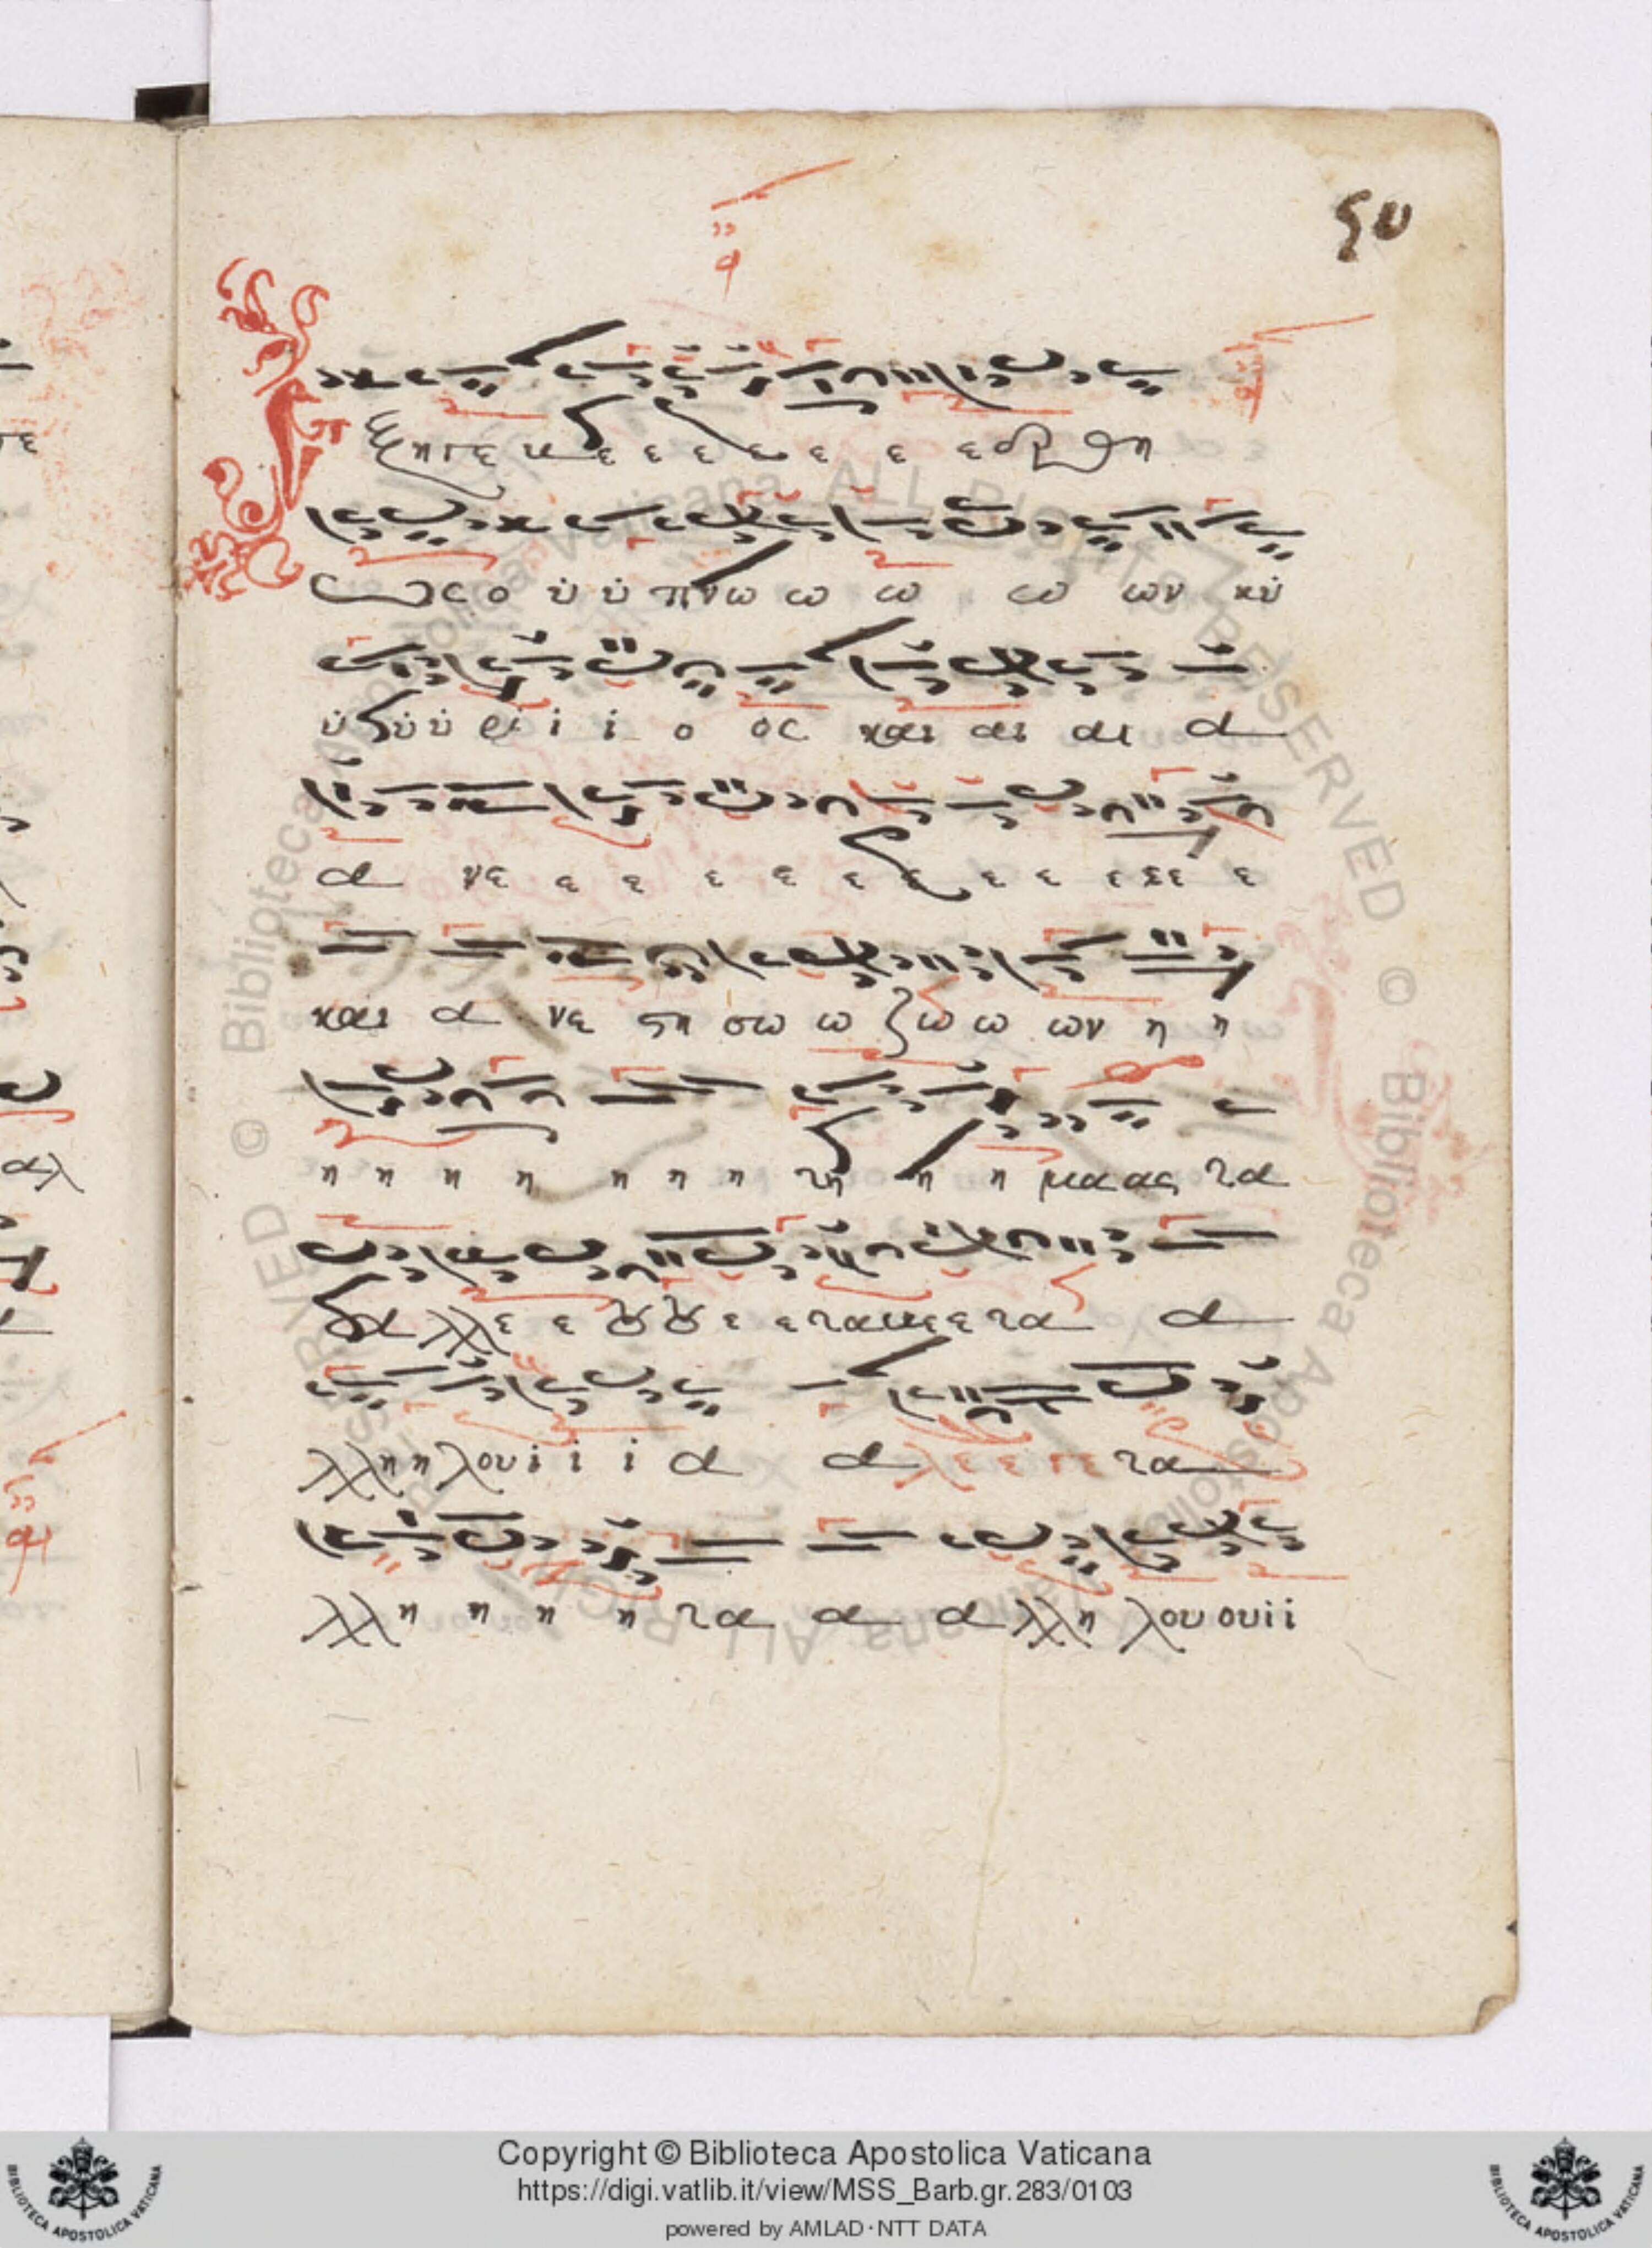 50
ξηπε κε ε ε ε ε ε ε ερθη
ως ο ύ ύ πνω ω ω ω ων κύ
ύ ύ ύ ρι ι ι ο ος και αι αι α
α νε ε ε ε ε ε ε ε ε ε ε ε ε
και α νε στη σω ω ζω ω ων η η
η η η η η η η τη η η μα ας τα
α λλε ε ου ου ε ε τα με ε τα α
λληη λουι ι ι α α λε ε γε τα
λλη η η η τα α α λλη λου ουι ι
Copyright © Biblioteca Apostolica Vaticana
https://digi.vatlib.it/view/MSS_Barb.gr.283/0103
powered by AMLAD·NTT DATA